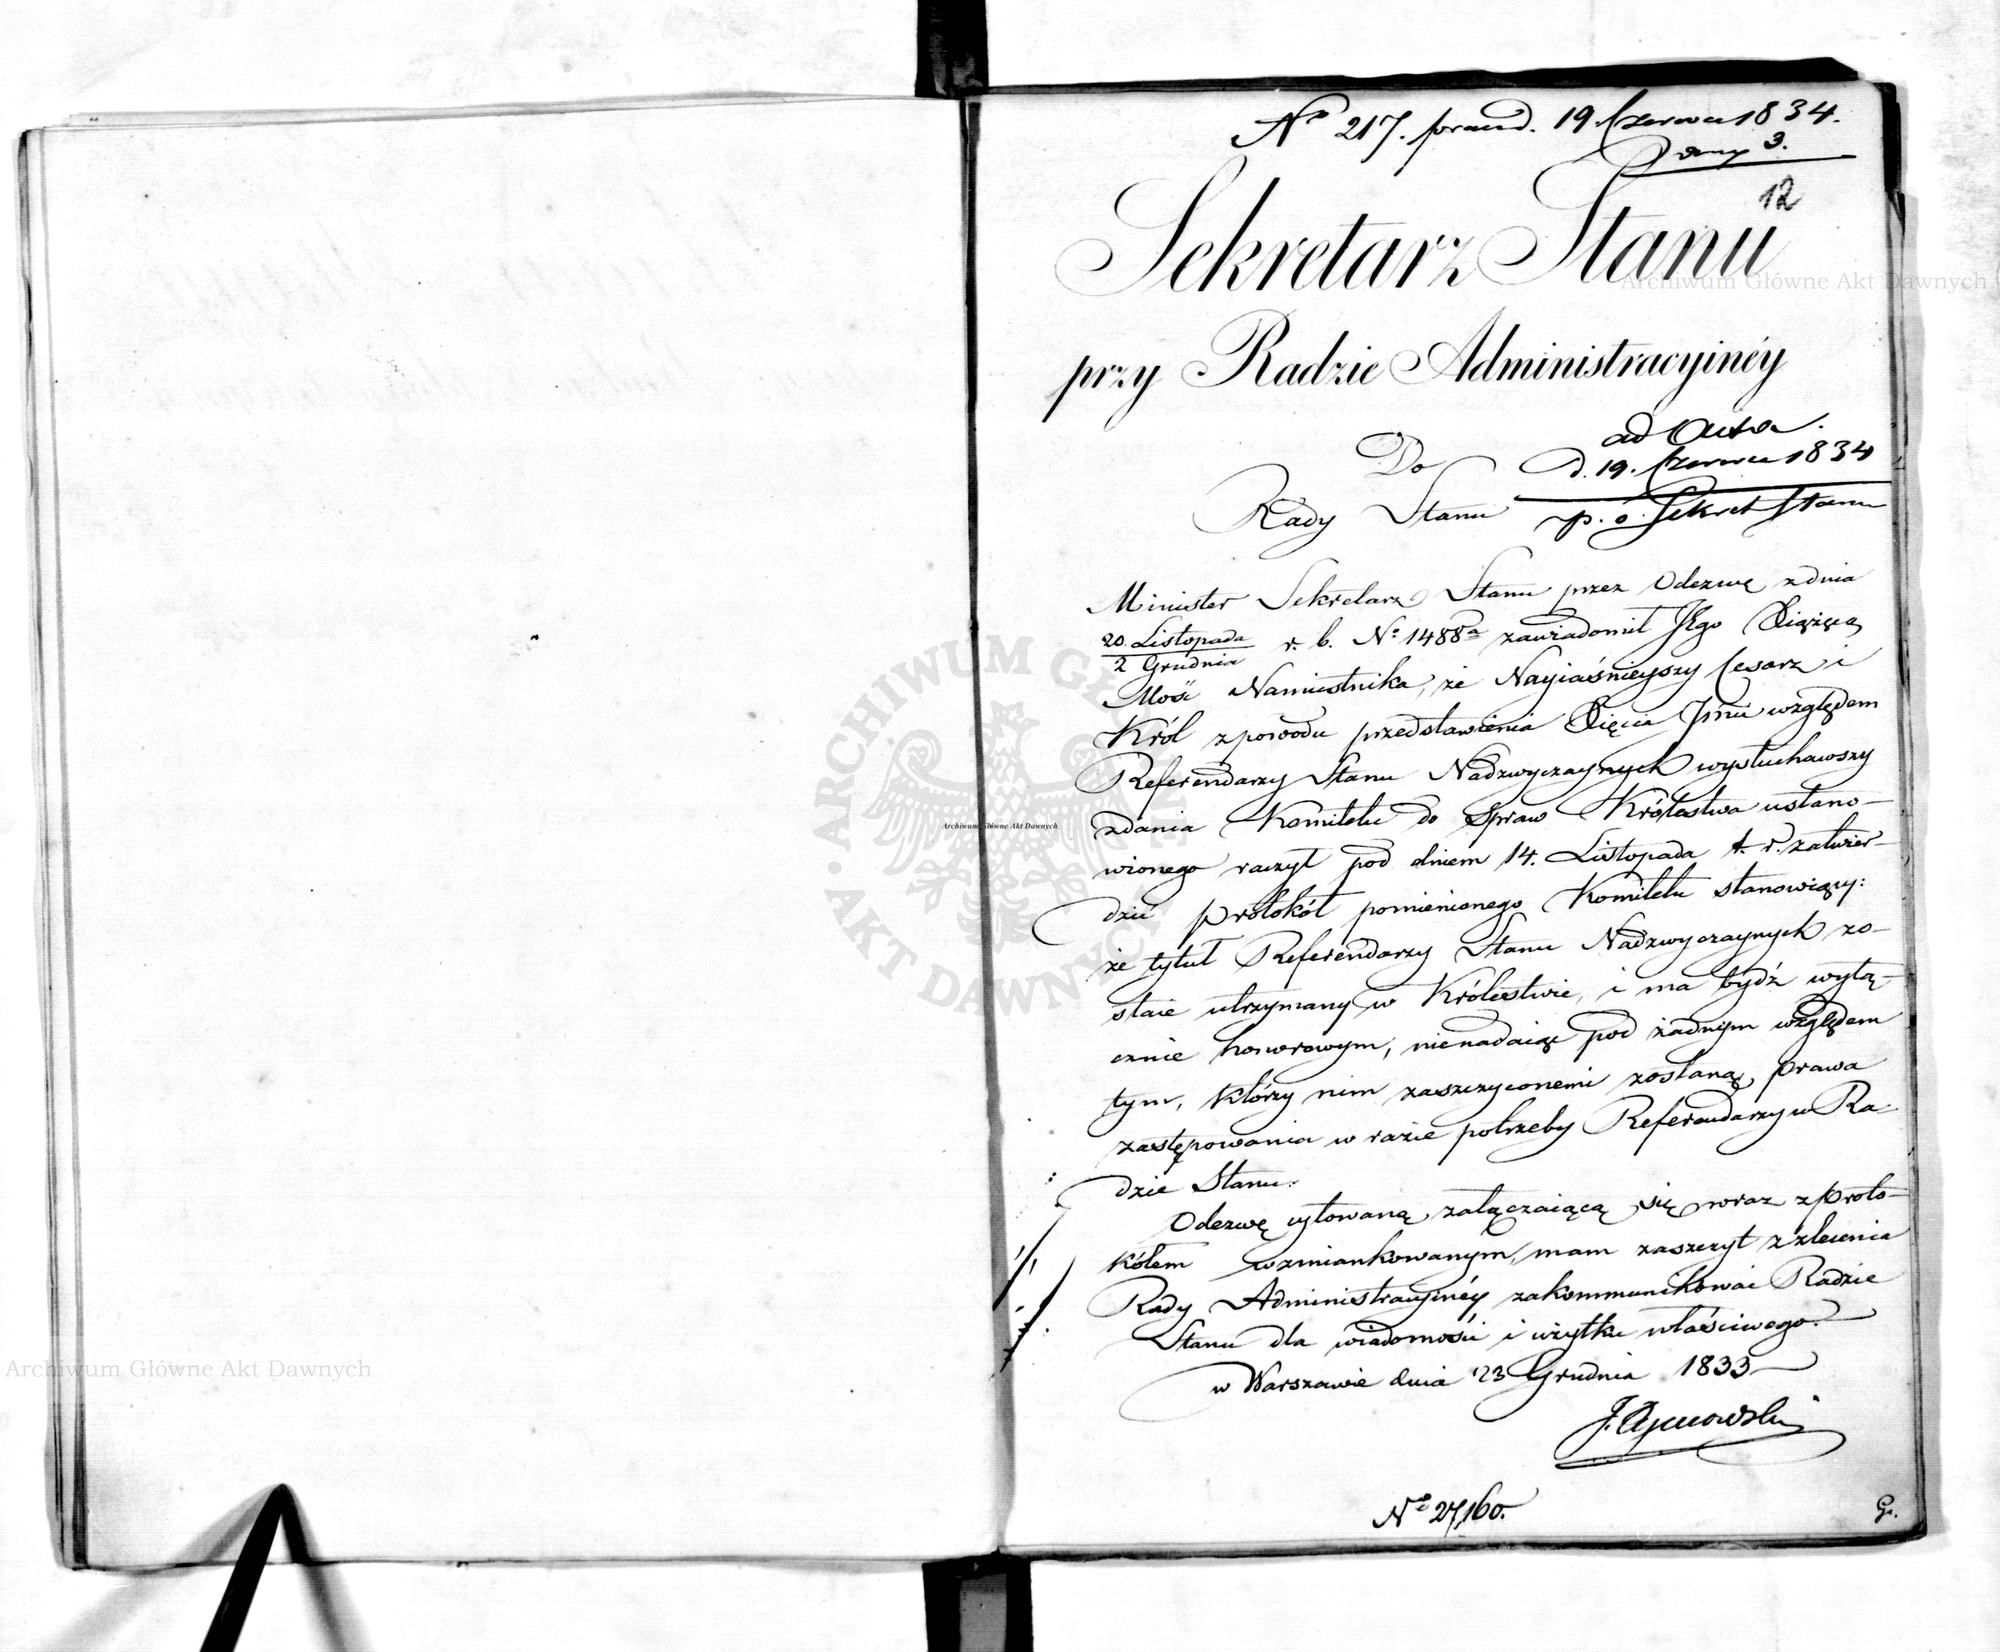 Nº 217. praes. d. 19. Czerwca 1834.
3.
12
Sekretarz Stanu
przy Radzie Administracyinéy
ad Acta.
Do
d. 19. Czerwca 1834
Rady Stanu
p. o. Sekret Stanu
Minister Sekretarz Stanu przez Odezwę z dnia
20. Listopada
2 Grudnia
r. b. Nº 1488 zawiadomił JEgo Xiążęcą
Mość Namiestnika, że Nayiaśnieyszy Cesarz i
Król z powodu przedstawienia Xięcia Jmci względem
Referendarzy Stanu Nadzwyczaynych wysłuchawszy
zdania Komitetu do Spraw Królestwa ustano-
wionego raczył pod dniem 14. Listopada t. r. zatwier-
dzić protokół pomienionego Komitetu stanowiący:
że tytuł Referendarzy Stanu Nadzwyczaynych zo-
staie utrzymany w Królestwie, i ma bydź wyłą-
cznie honorowym, nienadaiąc pod żadnym względem
tym, którzy nim zaszczyconemi zostaną, prawa
zastępowania w razie potrzeby Referendarzy w Ra-
dzie Stanu.
Odezwę cytowaną załączaiącą się wraz z proto-
kółem wzmiankowanym, mam zaszczyt z zlecenia
Rady Administracyinéy zakommunikować Radzie
Stanu dla wiadomości i użytku właściwego.
w Warszawie dnia 23 Grudnia 1833
Nº 27,160.
G.
Archiwum Główne Akt Dawnych
Archiwum Główne Akt Dawnych
Archiwum Główne Akt Dawnych
ARCHIWUM GŁÓWNE AKT DAWNYCH